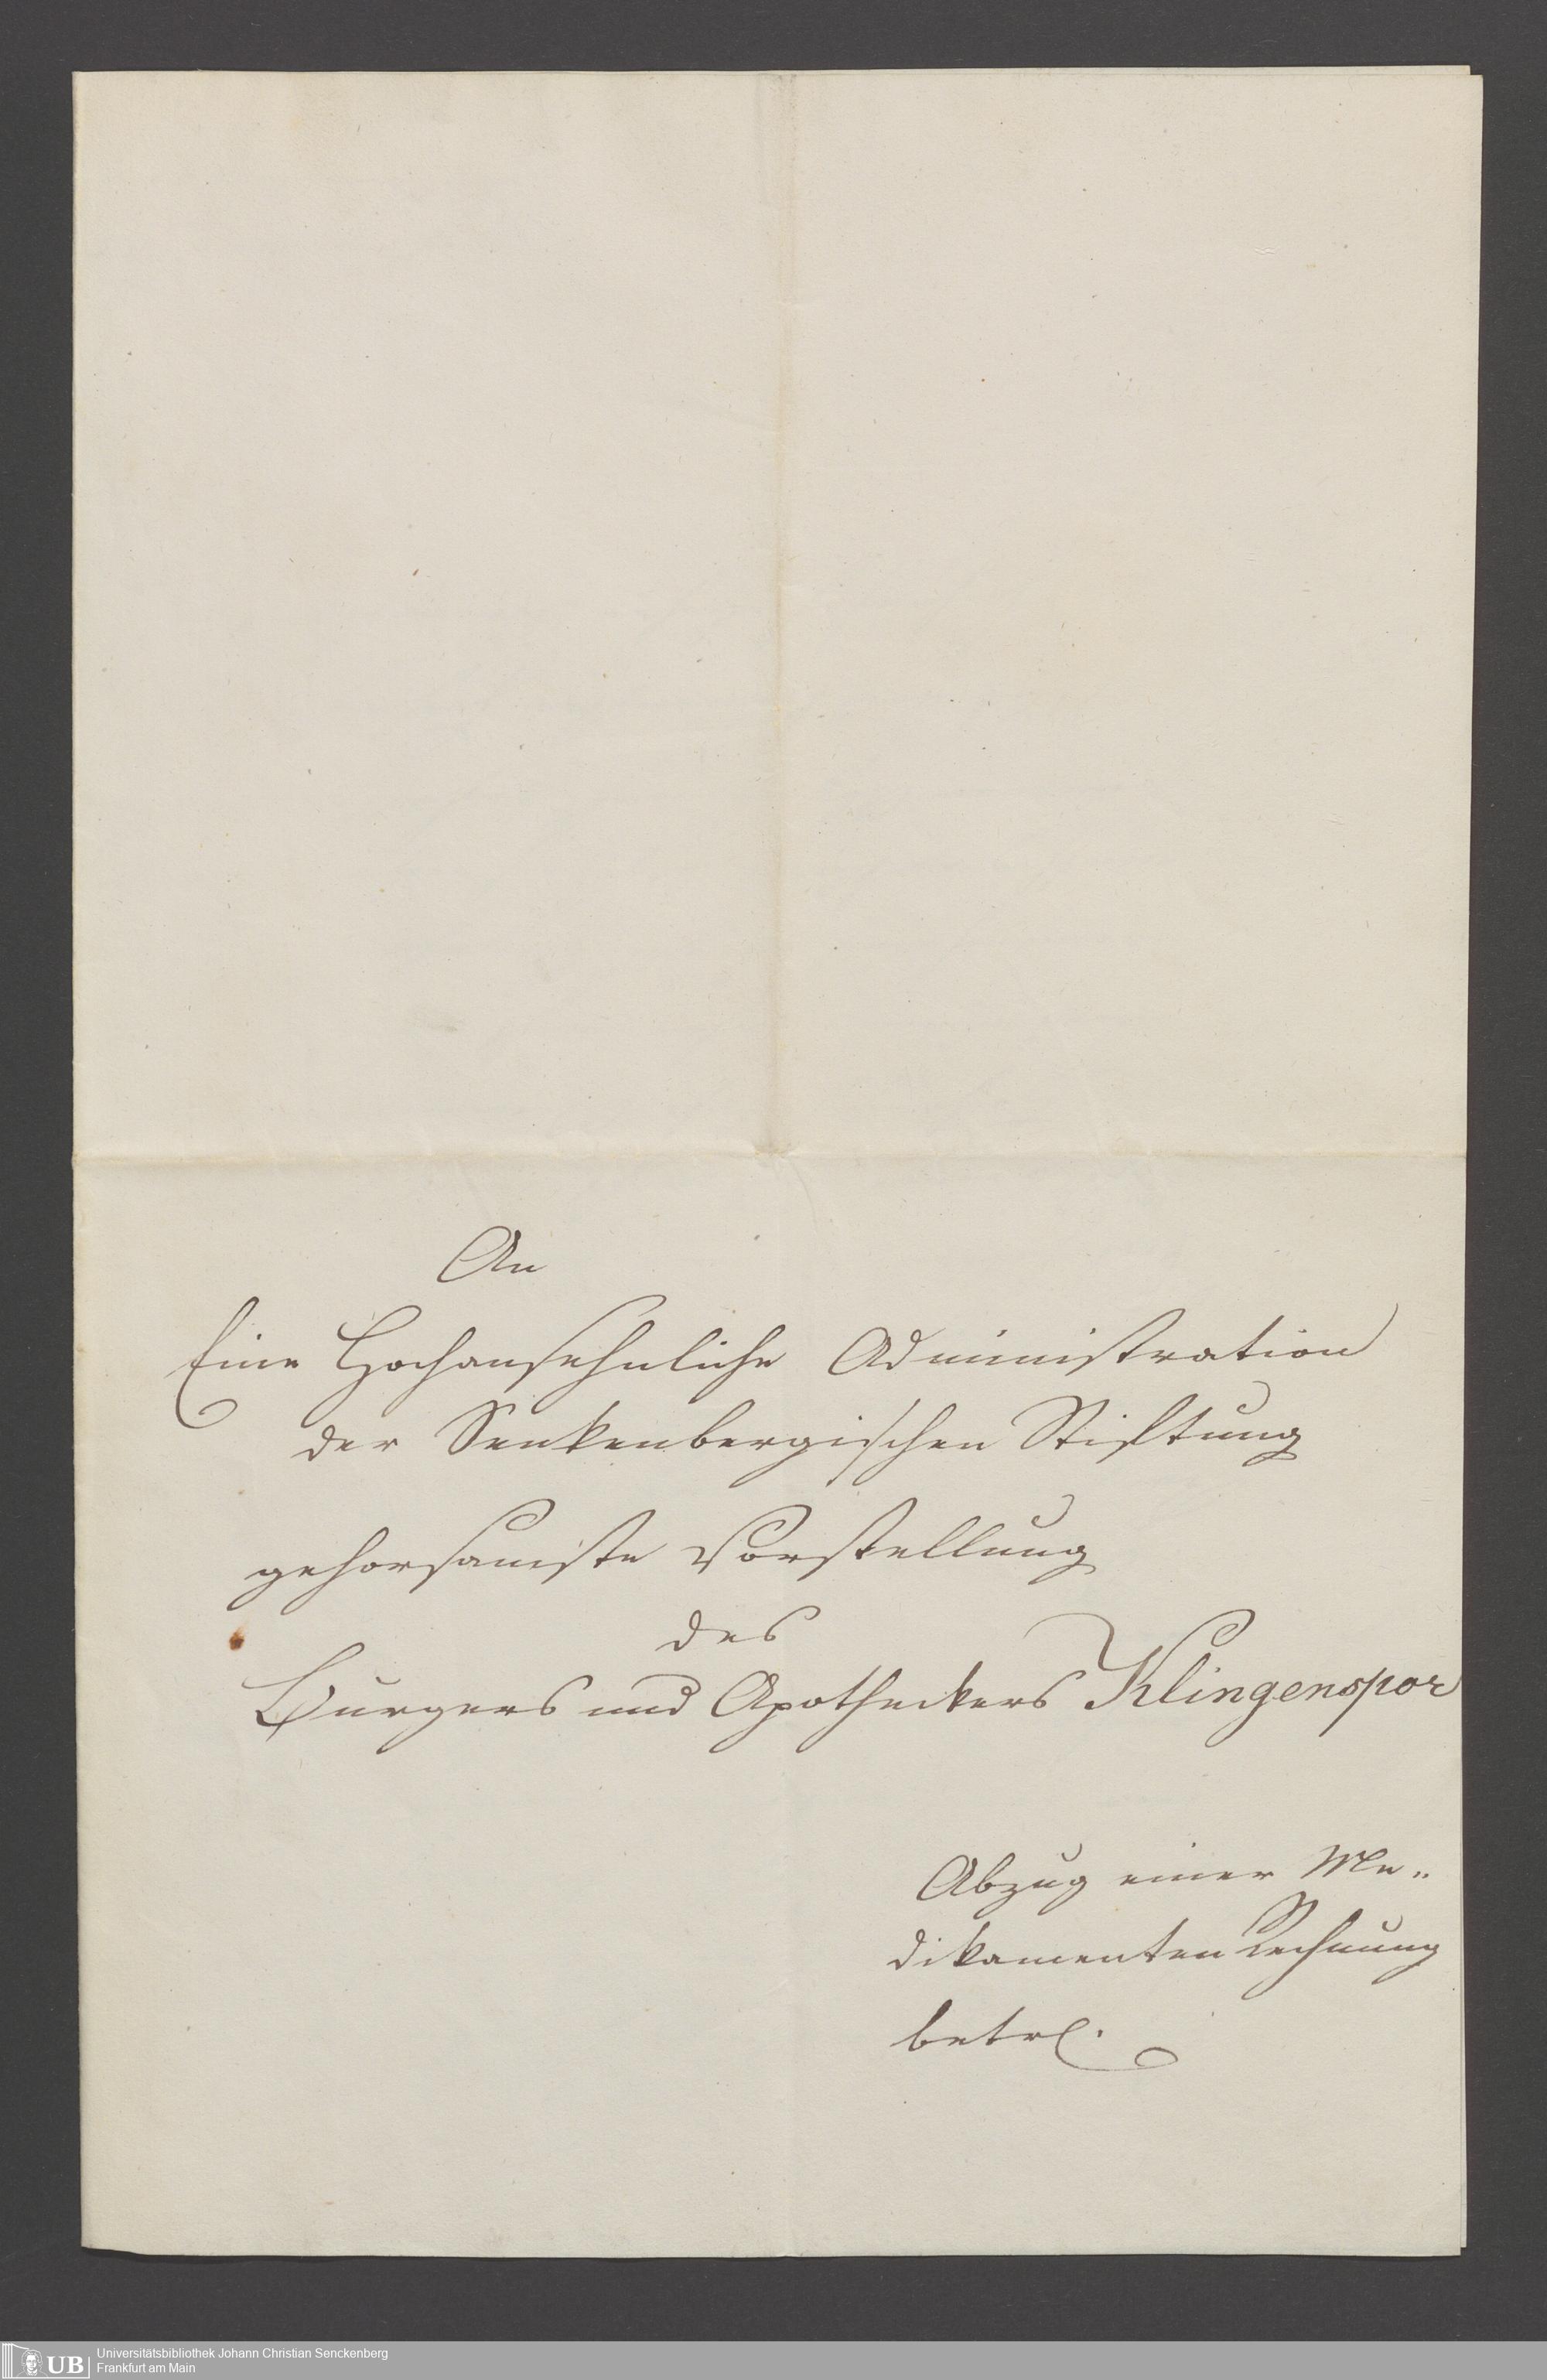 An
Eine Hochansehnliche Administration
der Senkenbergischen Stiftung
gehorsamste Vorstellung
des
Burgers und Apotheckers Klingenspor
Abzug einer Me„
dikamenten Rechnung
betr.
UB
Universitätsbibliothek Johann Christian Senckenberg
Frankfurt am Main